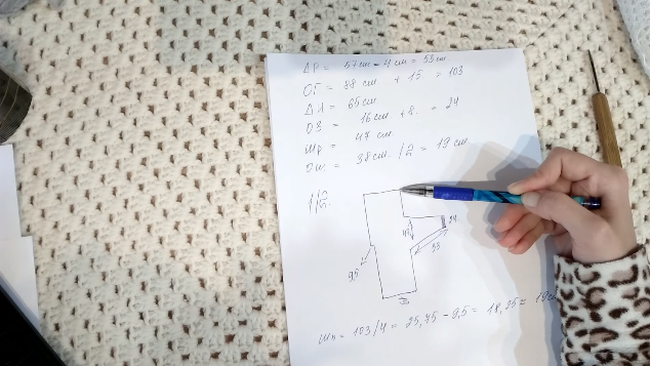 ДР = 57см - 4см = 53см
ОГ = 88 см + 15 = 103
ДИ = 65см
ОЗ = 16см + 8. = 24
Шр = 47 см.
Ош. = 38см. /2 = 19 см.
1/2.
24
53
9,5
Шп = 103/4 = 25,75 - 9,5 = 18,25 = 19см